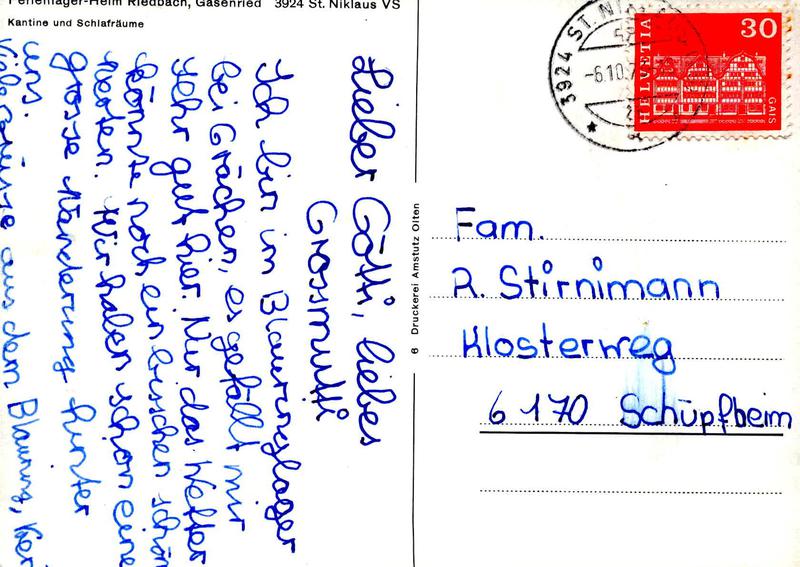 Ferienlager-Heim Riedbach, Gasenried 3924 St. Niklaus VS
Kantine und Schlafräume
Lieber Götti, liebes
Grossmutti
Ich bin im Blauringlager
bei Grächen, es gefällt mir
sehr gut hier. Nur das Wetter
könnte noch ein bisschen schön
werden. Wir haben schon eine
grosse Wanderung hinter
uns.
aus dem Blauring,
6 Druckerei Amstutz Olten
3924 ST. NIKLAUS
-6.10.7
HELVETIA
30
GAIS
Fam.
R. Stirnimann
Klosterweg
6170 Schüpfheim